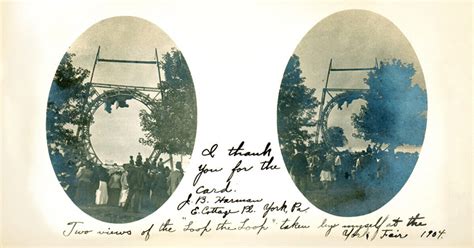 I thank
you for the
card.
J. B. Harman
E. Cottage Pl. York Pa
Two views of the "Loop the Loop" taken by myself at the
York Fair 1904.